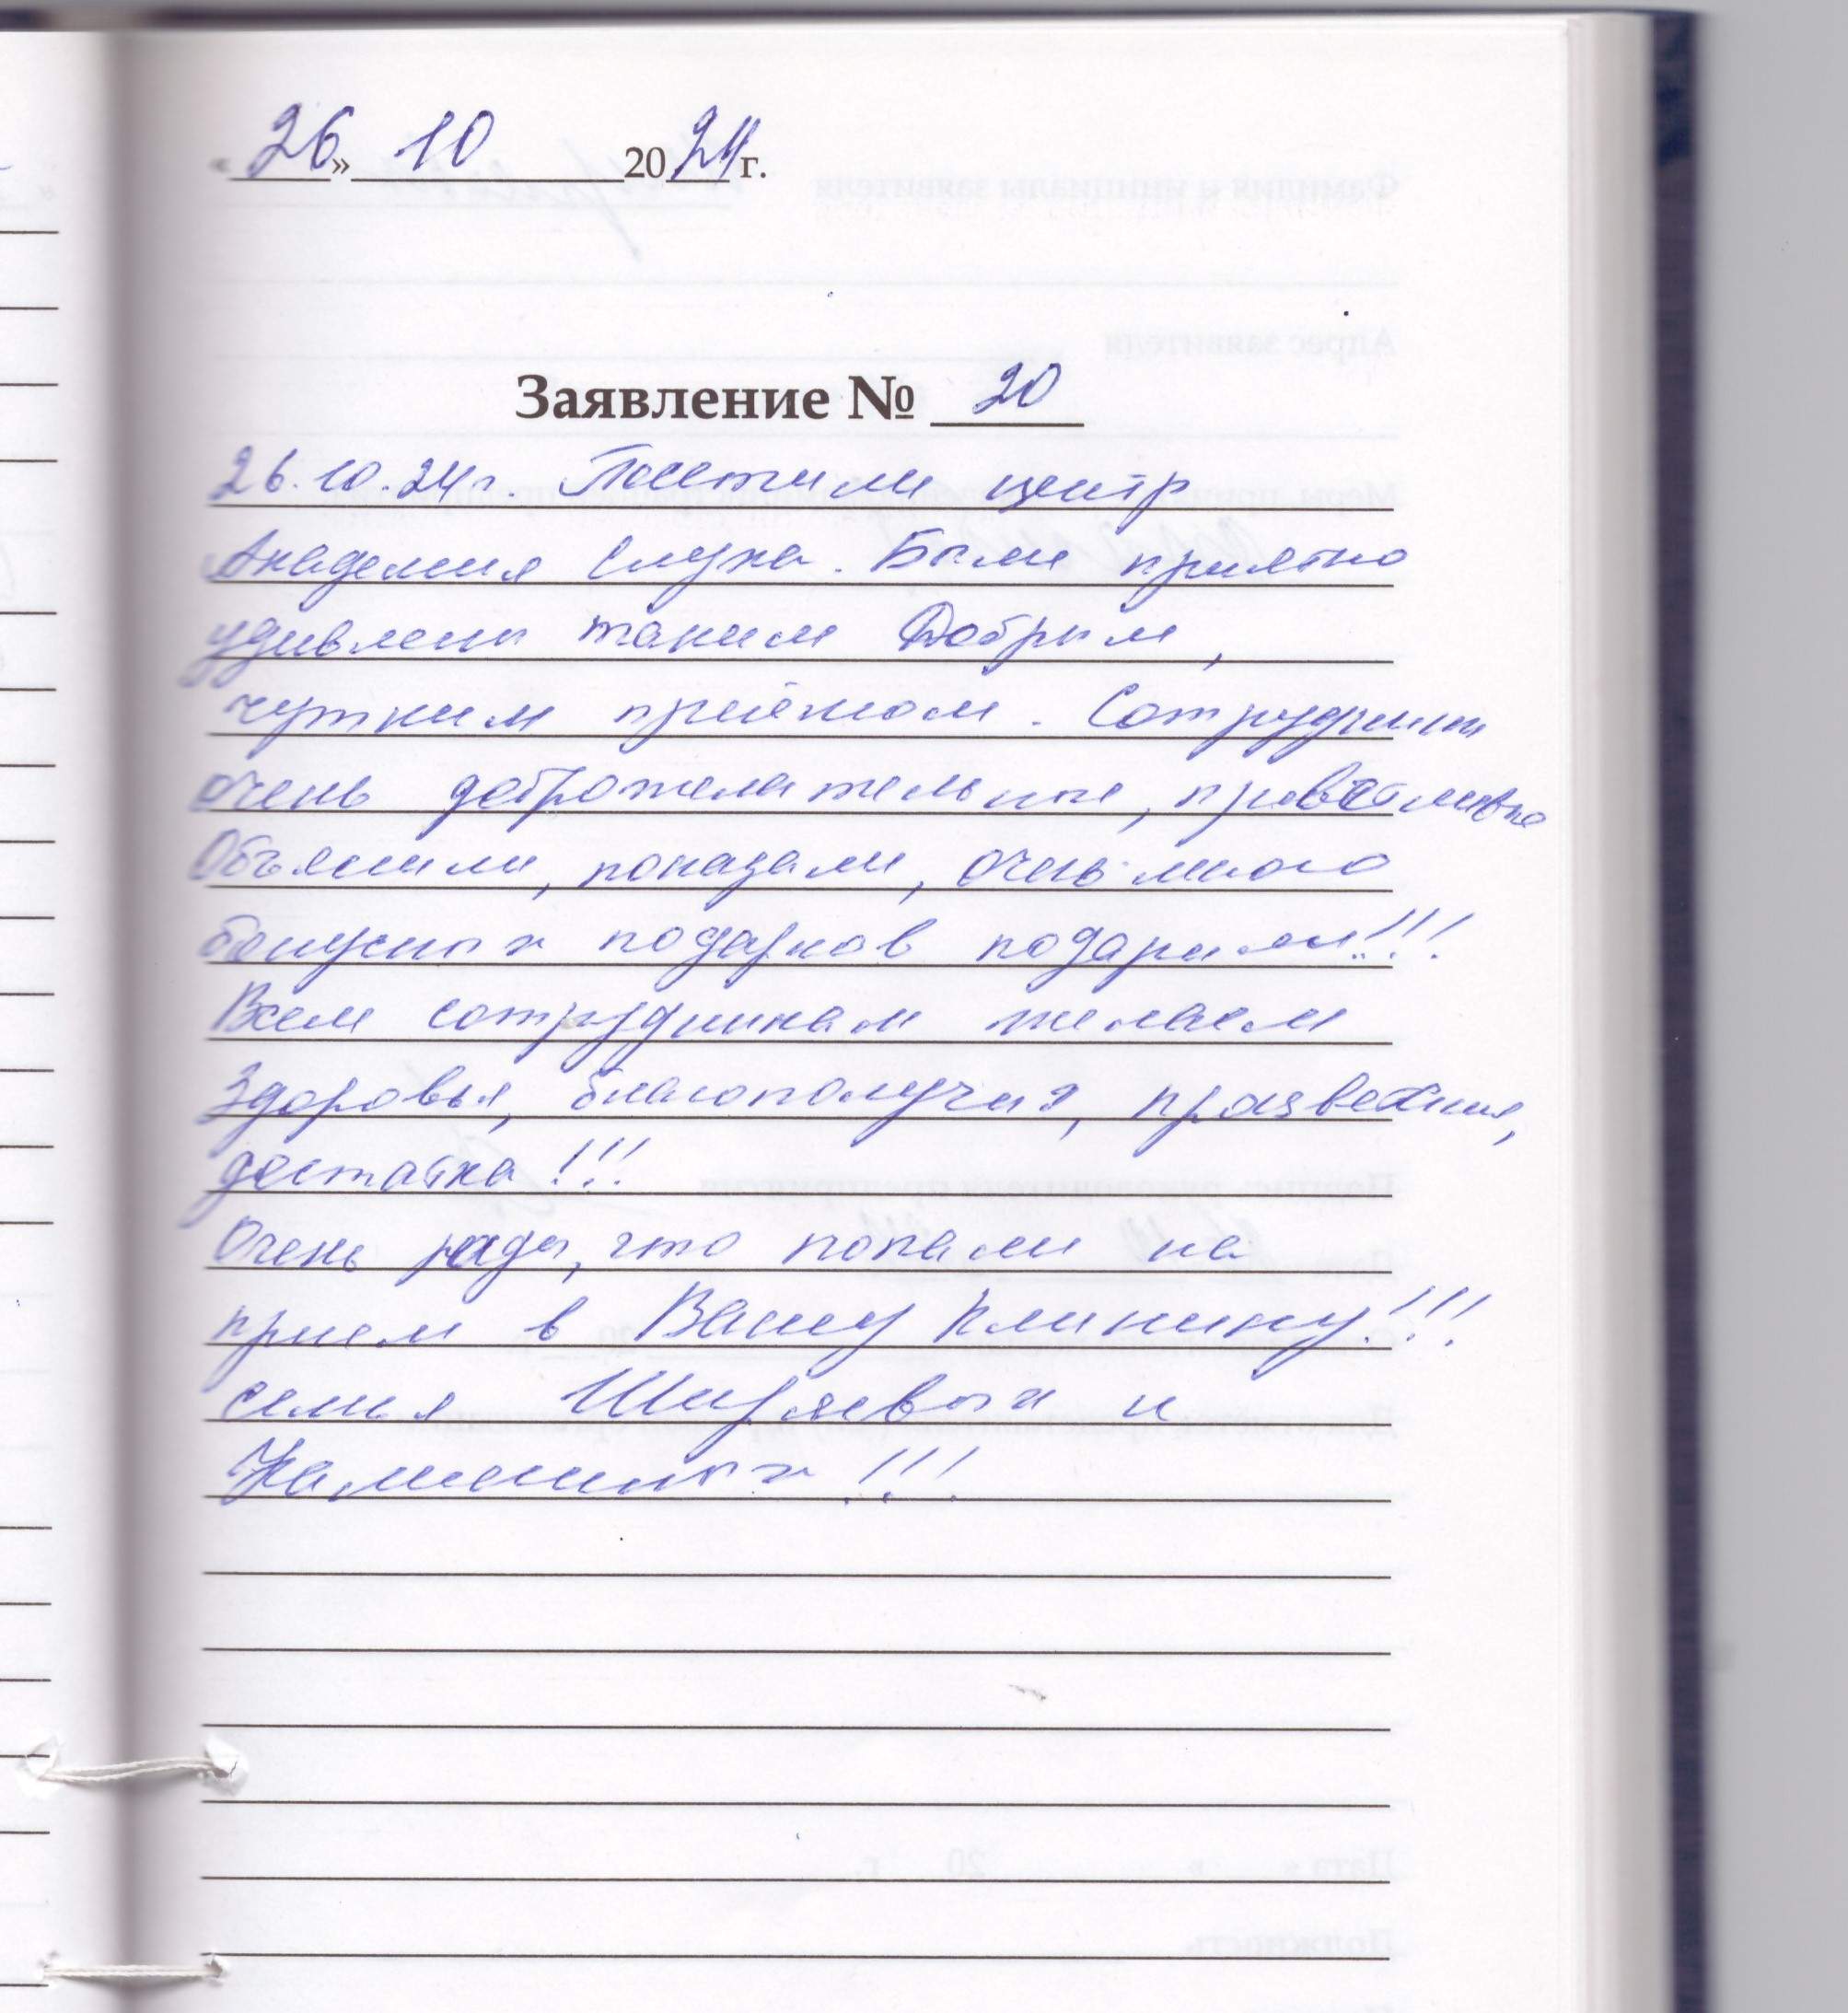 « 26 » 10 2024 г.
Заявление № 20
26.10.24г. Посетили центр
Академия Слуха. Были приятно
удивлены таким Добрым,
чутким приёмом. Сотрудники
очень доброжелательные, приветливые
Объяснили, показали, очень много
бонусных подарков подарили!!!
Всем сотрудникам желаем
Здоровья, благополучия, процветания,
достатка!!!
Очень рады, что попали на
прием в Вашу Клинику!!!
семья Ширяевых и